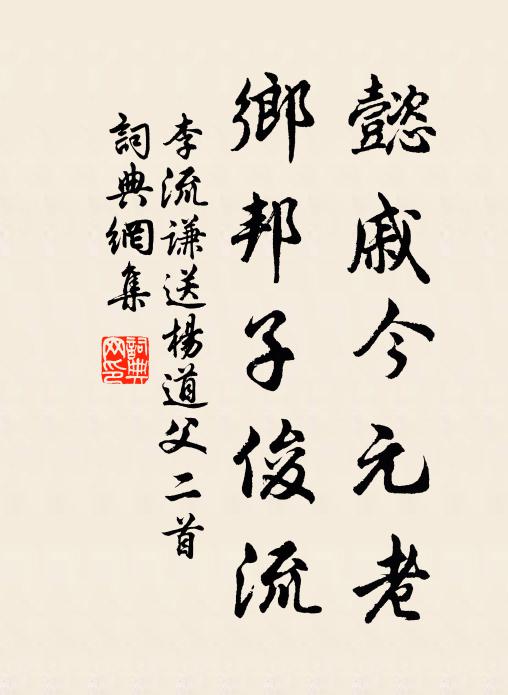 懿戚今元老
鄉邦子俊流
李流謙送楊道父二首
詞典網集
詞典網印